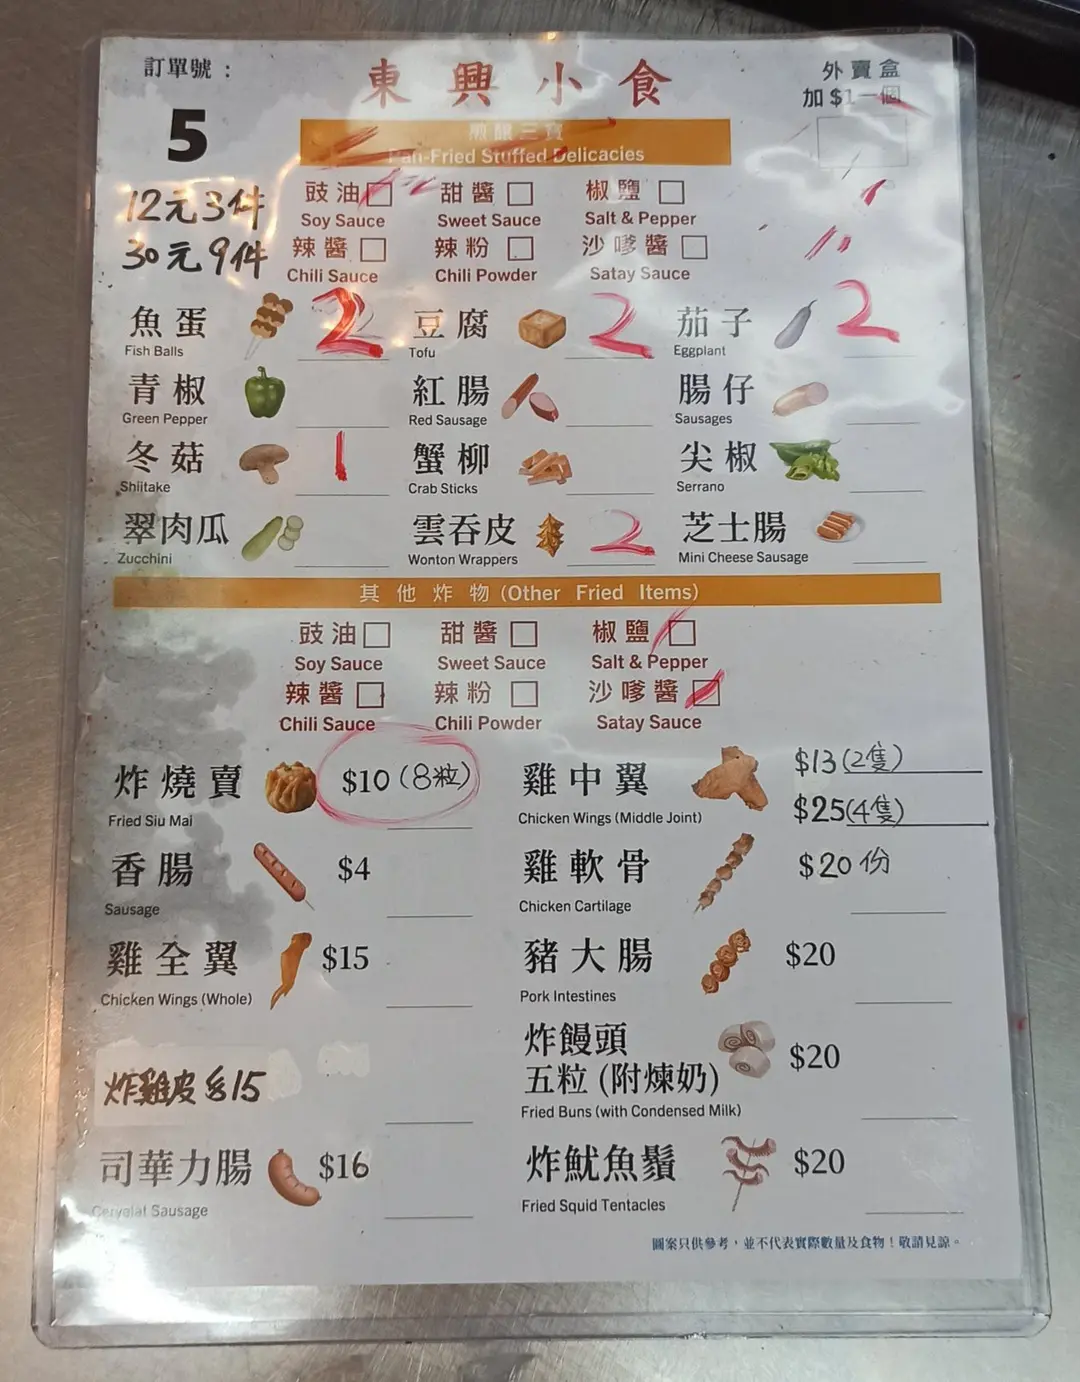 訂單號：
5
東興小食
外賣盒
加 $1一個
煎釀三寶
Pan-Fried Stuffed Delicacies
12元3件
30元9件
豉油 甜醬 椒鹽
Soy Sauce Sweet Sauce Salt & Pepper
辣醬 辣粉 沙嗲醬
Chili Sauce Chili Powder Satay Sauce
魚蛋 2 豆腐 2 茄子 2
Fish Balls Tofu Eggplant
青椒 紅腸 腸仔
Green Pepper Red Sausage Sausages
冬菇 1 蟹柳 尖椒
Shiitake Crab Sticks Serrano
翠肉瓜 雲吞皮 2 芝士腸
Zucchini Wonton Wrappers Mini Cheese Sausage
其他炸物 (Other Fried Items)
豉油 甜醬 椒鹽
Soy Sauce Sweet Sauce Salt & Pepper
辣醬 辣粉 沙嗲醬
Chili Sauce Chili Powder Satay Sauce
炸燒賣 $10 (8粒) 雞中翼 $13 (2隻)
$25 (4隻)
Fried Siu Mai Chicken Wings (Middle Joint)
香腸 $4 雞軟骨 $20 份
Sausage Chicken Cartilage
雞全翼 $15 豬大腸 $20
Chicken Wings (Whole) Pork Intestines
炸雞皮 $15 炸饅頭
五粒 (附煉奶) $20
Fried Buns (with Condensed Milk)
司華力腸 $16 炸魷魚鬚 $20
Cervelat Sausage Fried Squid Tentacles
圖案只供參考，並不代表實際數量及食物！敬請見諒。